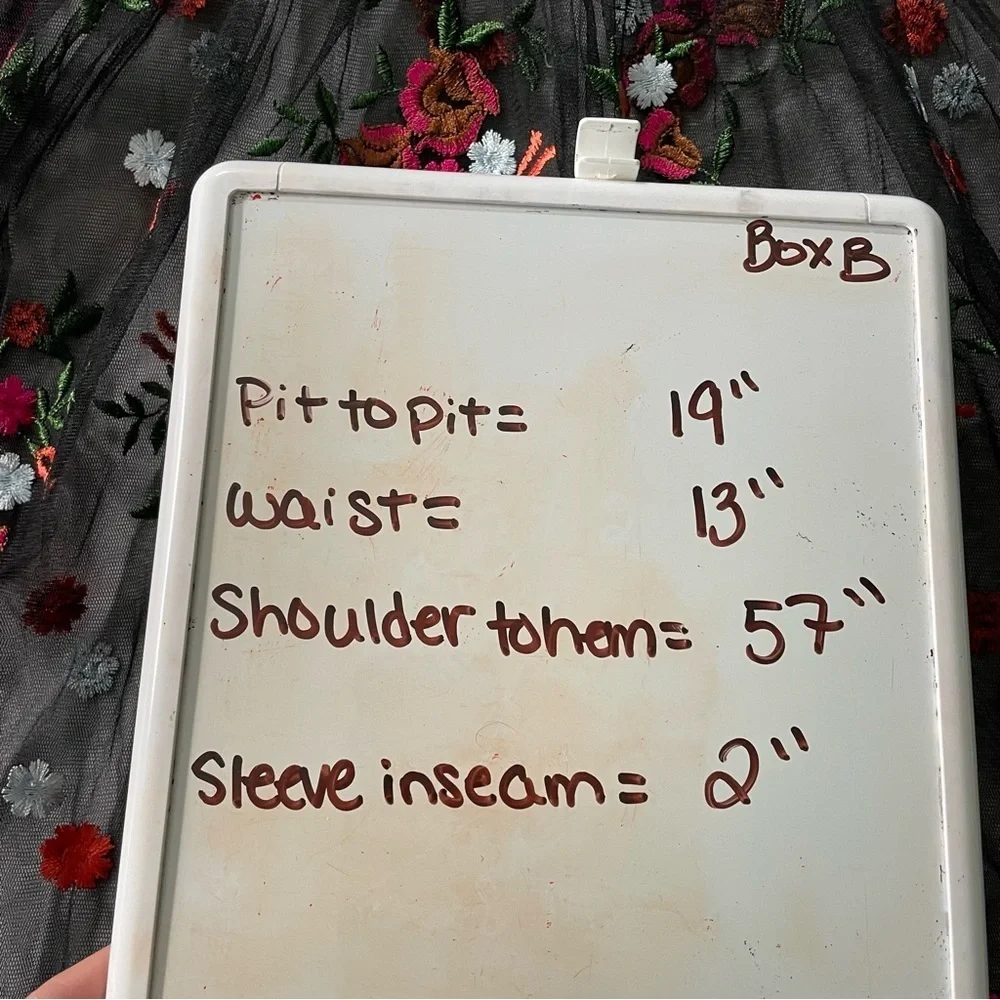 Box B
Pit to pit = 19"
waist = 13"
Shoulder to hem = 57"
Sleeve inseam = 2"